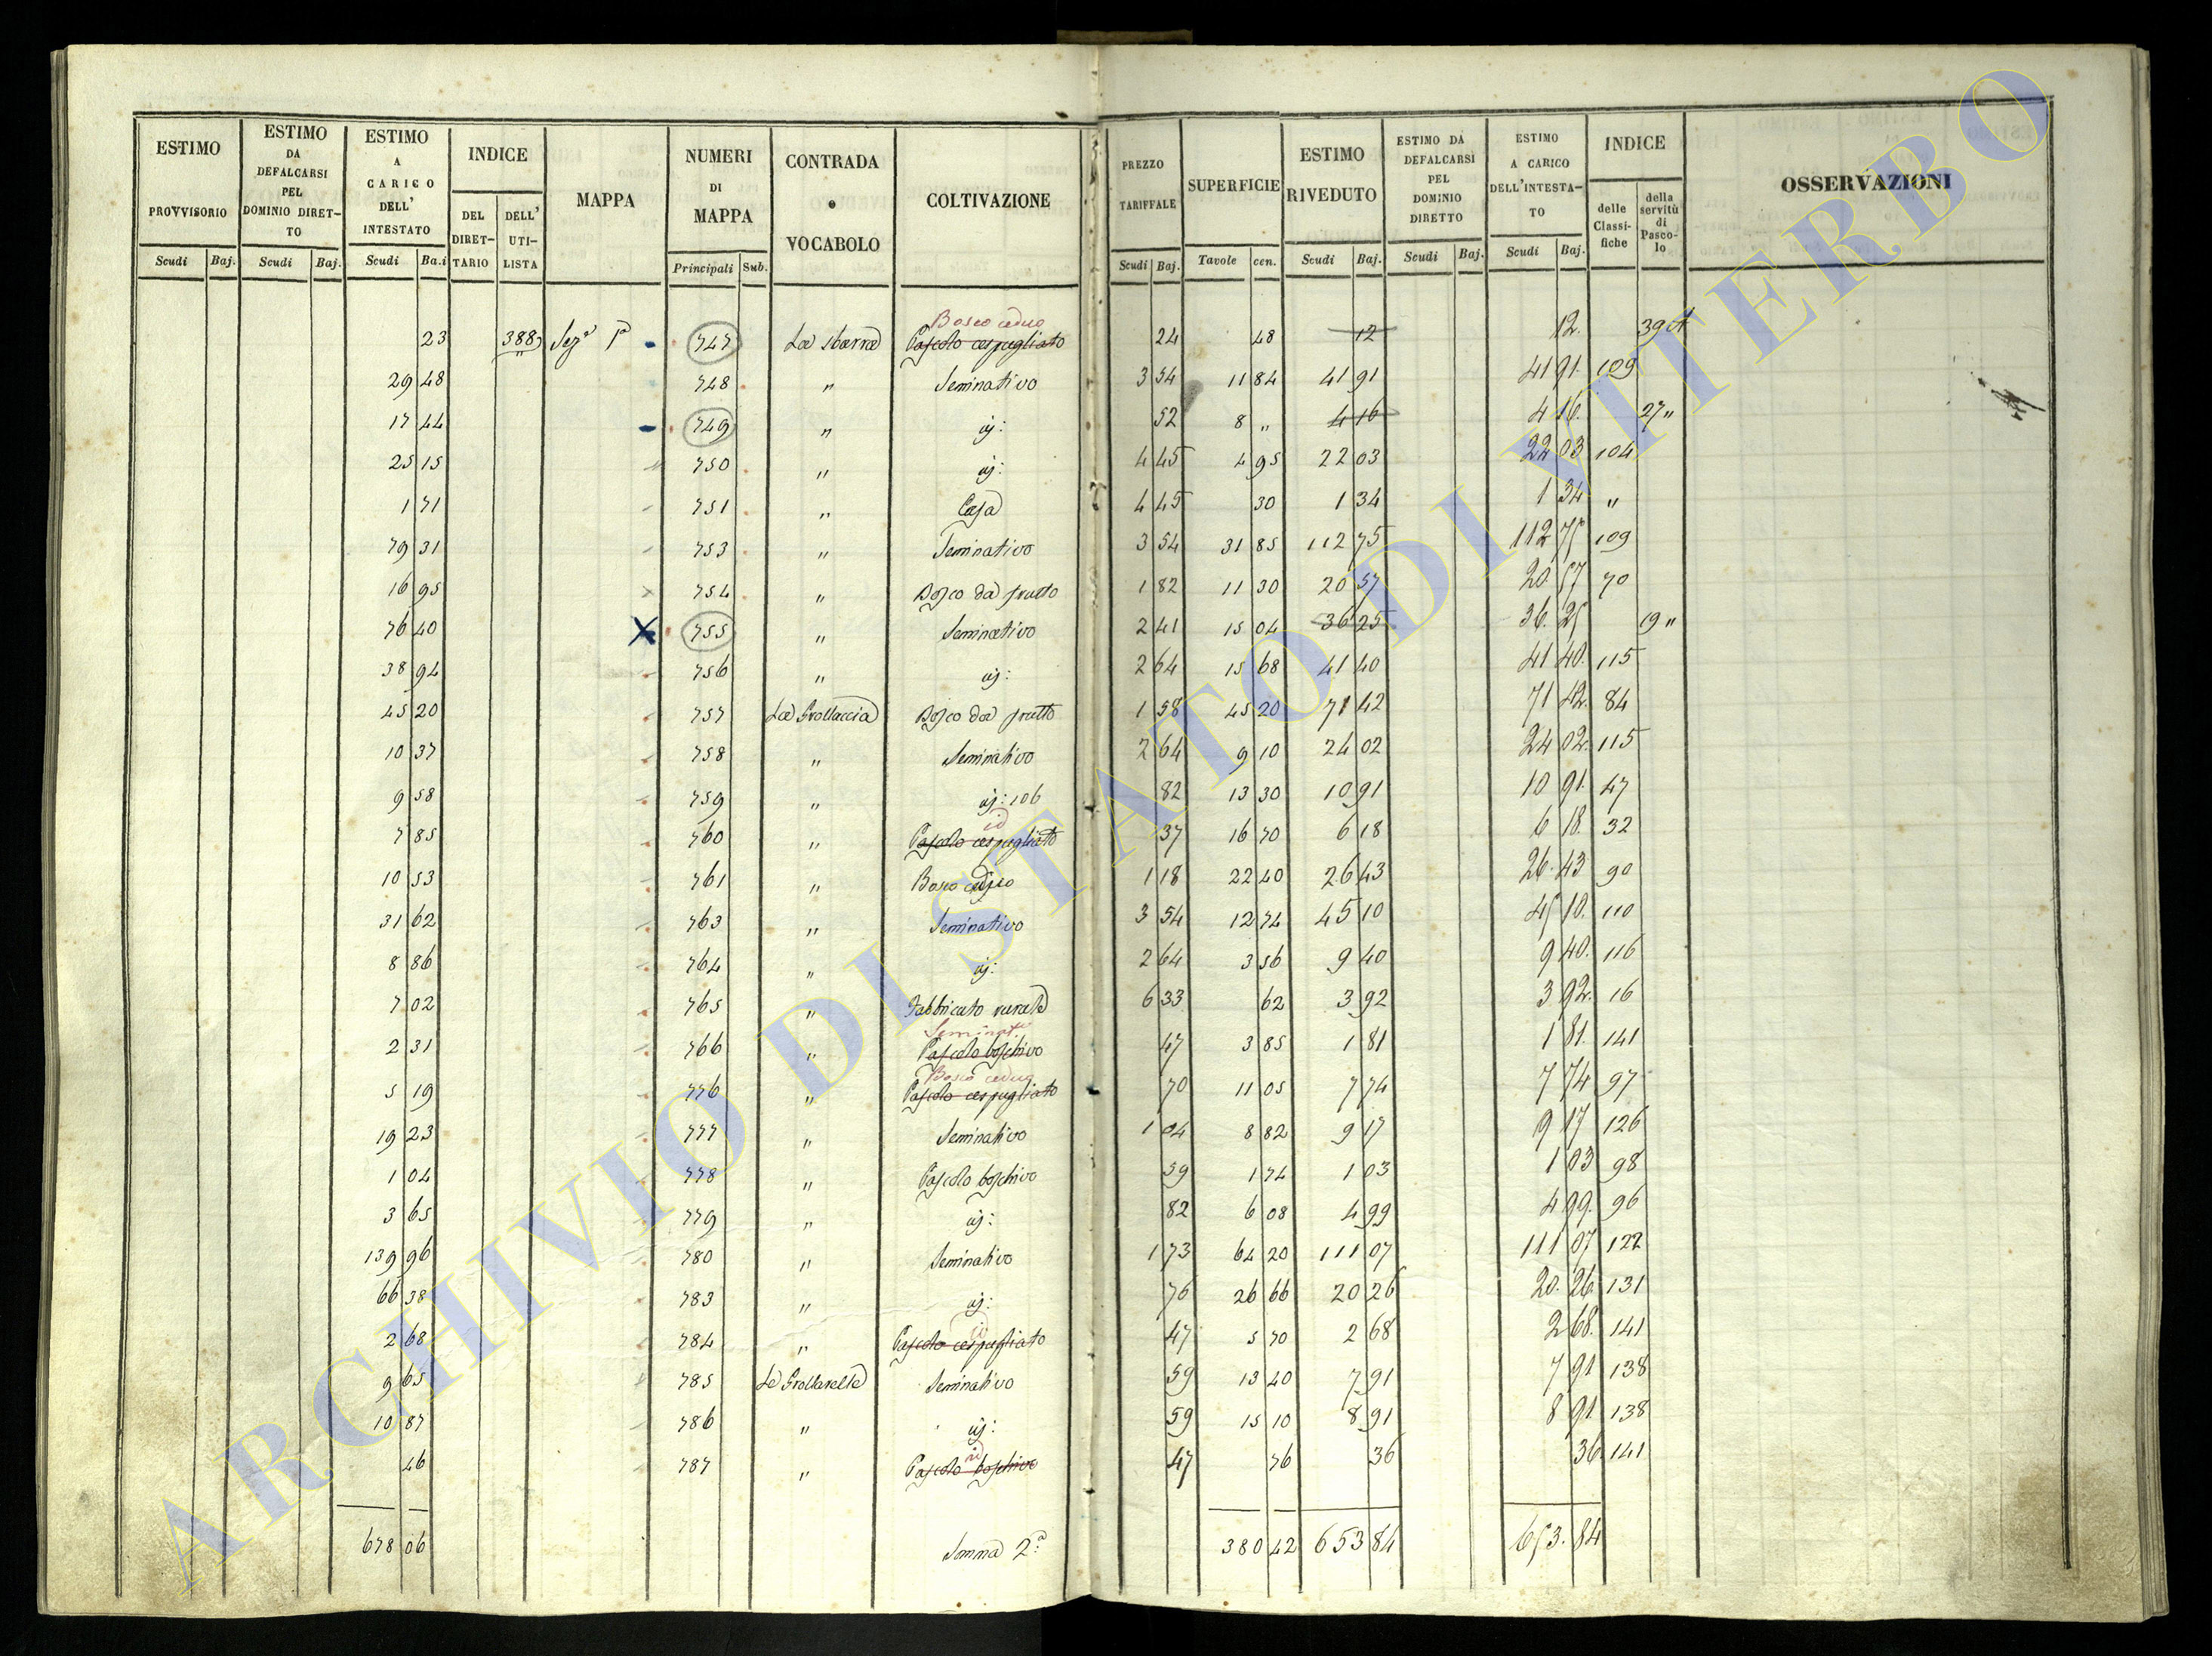 ESTIMO PROVVISORIO | ESTIMO DA DEFALCARSI PEL DOMINIO DIRET-TO | ESTIMO A CARICO DELL' INTESTATO | INDICE | MAPPA | NUMERI DI MAPPA | CONTRADA e VOCABOLO | COLTIVAZIONE | PREZZO TARIFFALE | SUPERFICIE | ESTIMO RIVEDUTO | ESTIMO DA DEFALCARSI PEL DOMINIO DIRETTO | ESTIMO A CARICO DELL'INTESTA-TO | INDICE | OSSERVAZIONI
DEL DIRET-TARIO | DELL' UTI-LISTA | delle Classi-fiche | della servitù di Pasco-lo
Scudi | Baj. | Scudi | Baj. | Scudi | Ba.i | Principali | Sub. | Scudi | Baj. | Tavole | cen. | Scudi | Baj. | Scudi | Baj. | Scudi | Baj.
Bosco ceduo
23 | 388 | Sez.a 1a | 747 | La sbarra | Pascolo cespugliato | 24 | 48 | 12 | 12. | 39
29 48 | 748 | " | Seminativo | 3 54 | 11 84 | 41 91 | 41 91. | 109
17 44 | 749 | " | iij: | 52 | 8 " | 4 16 | 4 16. | 27 "
25 15 | 750 | " | iij: | 4 45 | 4 95 | 22 03 | 22 03 | 104
1 71 | 751 | " | Casa | 4 45 | 30 | 1 34 | 1 34 | "
79 31 | 753 | " | Seminativo | 3 54 | 31 85 | 112 75 | 112 75 | 109
16 95 | 754 | " | Bosco da frutto | 1 82 | 11 30 | 20 57 | 20. 57 | 70
76 40 | 755 | " | Seminativo | 2 41 | 15 04 | 36 25 | 36. 25 | 19 "
38 94 | 756 | " | iij: | 2 64 | 15 68 | 41 40 | 41 40. | 115
45 20 | 757 | La Grottaccia | Bosco da frutto | 1 58 | 45 20 | 71 42 | 71 42. | 84
10 37 | 758 | " | Seminativo | 2 64 | 9 10 | 24 02 | 24 02. | 115
9 58 | 759 | " | iij: 106 | 82 | 13 30 | 10 91 | 10 91. | 47
id
7 85 | 760 | " | Pascolo cespugliato | 37 | 16 70 | 6 18 | 6 18. | 32
10 53 | 761 | " | Bosco ceduo | 1 18 | 22 40 | 26 43 | 26. 43 | 90
31 62 | 763 | " | Seminativo | 3 54 | 12 74 | 45 10 | 45 10. | 110
8 86 | 764 | " | iij: | 2 64 | 3 56 | 9 40 | 9 40. | 116
7 02 | 765 | " | Fabbricato rurale | 6 33 | 62 | 3 92 | 3 92. | 16
Seminat.o
2 31 | 766 | " | Pascolo boschivo | 47 | 3 85 | 1 81 | 1 81. | 141
Bosco ceduo
5 19 | 776 | " | Pascolo cespugliato | 70 | 11 05 | 7 74 | 7 74 | 97
19 23 | 777 | " | Seminativo | 1 04 | 8 82 | 9 17 | 9 17 | 126
1 04 | 778 | " | Pascolo boschivo | 59 | 1 74 | 1 03 | 1 03 | 98
3 65 | 779 | " | iij: | 82 | 6 08 | 4 99 | 4 99. | 96
139 96 | 780 | " | Seminativo | 1 73 | 64 20 | 111 07 | 111 07 | 122
66 38 | 783 | " | iij: | 76 | 26 66 | 20 26 | 20. 26 | 131
id
2 68 | 784 | " | Pascolo cespugliato | 47 | 5 70 | 2 68 | 2 68. | 141
9 65 | 785 | Le Grottarelle | Seminativo | 59 | 13 40 | 7 91 | 7 91 | 138
10 87 | 786 | " | iij: | 59 | 15 10 | 8 91 | 8 91 | 138
id
46 | 787 | " | Pascolo boschivo | 47 | 76 | 36 | 36. | 141
678 06 | Somma 2a | 380 42 | 653 84 | 653. 84
ARCHIVIO DI STATO DI VITERBO